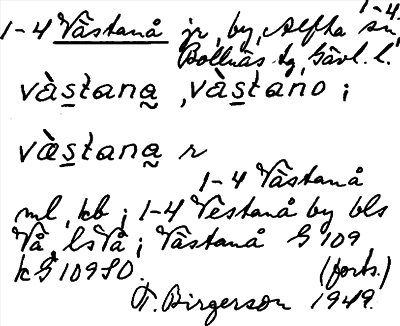 1-4.
1-4 Västanå jr, by, Alfta sn,
Bollnäs tg, Gävl. l.
vàstana̰ , vàstano i
và̤stana̰ r
1-4 Västanå
ml, kb ; 1-4 Vestanå by bls
Vå, ls Vå ; Västanå G 109
kG 109 SO. (forts.)
T. Birgerson 1949.